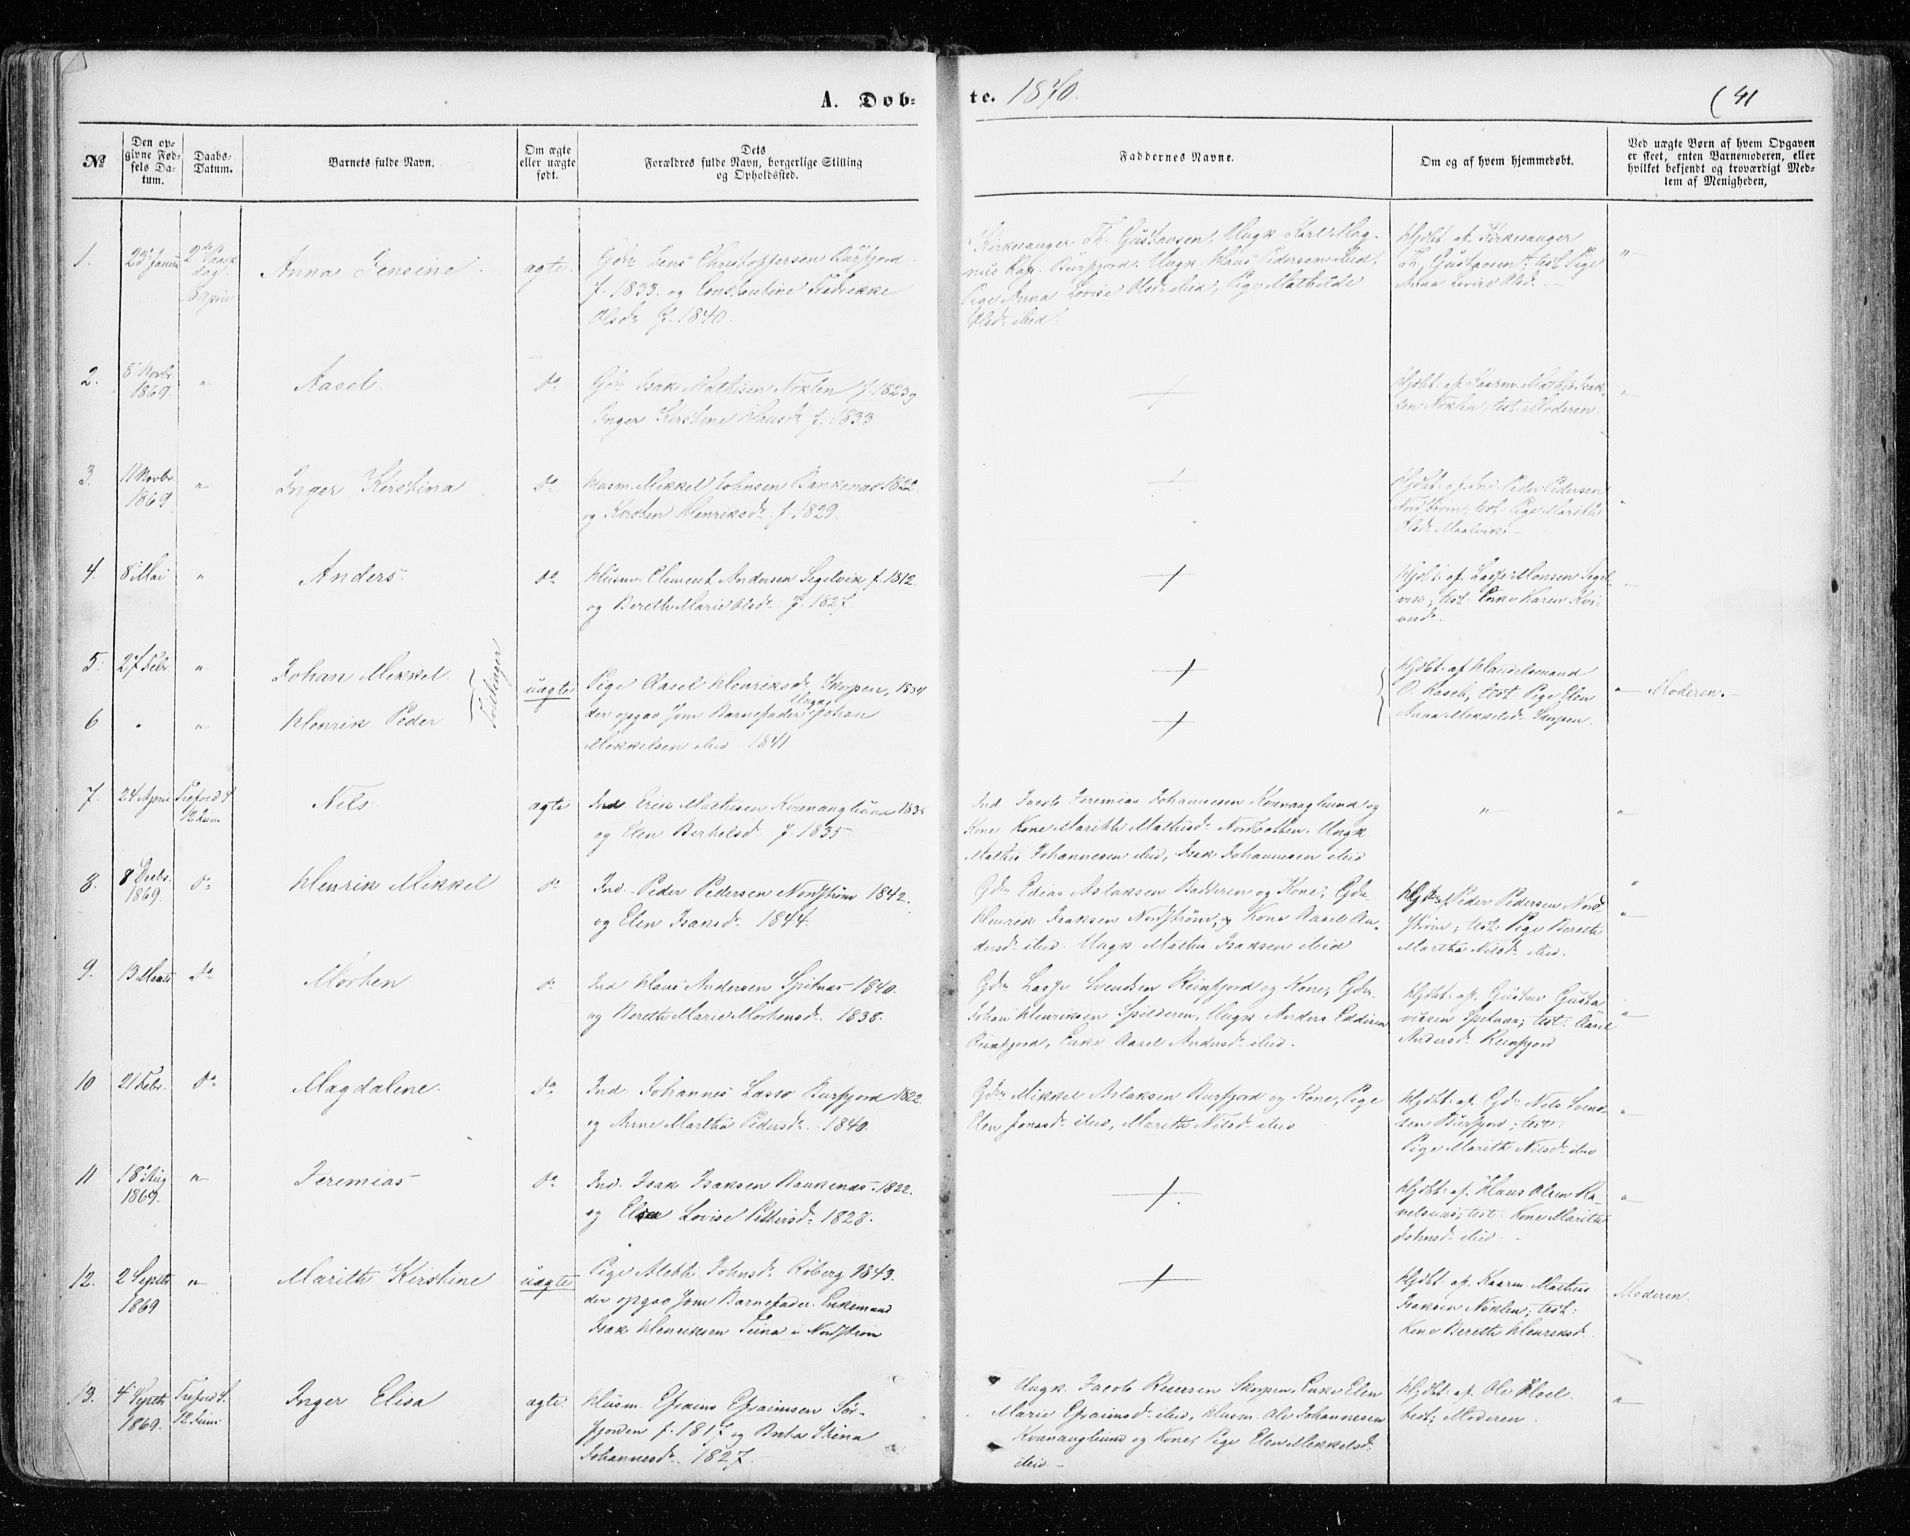 A. Døb-
te. 1870.
( 41
№
Den op-
givne Fød-
sels Da-
tum.
Daabs-
Datum.
Barnets fulde Navn.
Om ægte
eller uægte
født.
Dets
Forældres fulde Navn, borgerlige Stilling
og Opholdssted.
Faddernes Navne.
Om og af hvem hjemmedøbt.
Ved uægte Børn af hvem Opgaven
er skeet, enten Barnemoderen, eller
hvilket bekjendt og troværdigt Med-
lem af Menigheden,
1.
Anna Jensine
ægte.
Christophersen Burfjord
f. 1833. og Constantine Fredrikke
Olsdr. f. 1840.
Kirkesanger Th. Gustavsen, Ungk. Karl Mag-
Burfjord. Ungk. Hans Pedersen ibid,
Pige Anna Lovise Olsdr. ibid, Pige Mathilde
Olsdr. ibid.
Hjdbt. af Kirkesanger
Th. Gustavsen; test. Pige
Anna Lovise Olsd.
2.
8 Novbr
1869.
"
Aasel.
do
Isak Mathisen Noklen f. 1823 og
Inger Kirstine Hansdr. f. 1833
+
Noklen, test. Moderen.
"
3.
11 Novbr
1869
"
Inger Kirstina
do
Husm. Mikkel Johnsen 1822
og Kirsten Henriksdr. f. 1829.
+
Hjdbt. af Ind. Peder Pedersen
Nordstrøm, test. Pige Marith
"
4.
8 Mai
"
Anders.
do
Husm. Clement Andersen Segelvik f. 1812.
og Bereth Marie Olsdr. f. 1827.
+
Hjdbt. af Lasse Monsen Segel-
vik; test. Enke Karen
"
5.
27 Febr
"
Johan Mikkel
Tvillinger
uægte
Pige Aasel Henriksdr. Skorpen, 1834
der opgav som Barnefader Ungk. Johan
Mikkelsen ibid 1841
+
Hjdbt. af Handelsmand
O. Kasch, test. Pige Elen
Anna Mikkelsdr. Skorpen.
" Moderen.
6
"
"
Henrik Peder
+
7.
24 April
Trefold. S.
12 Juni
Nils
ægte
Ind Erik Mathisen Kvænangbund 1835
og Elen Berhelsdr. f. 1835
Ind. Jacob Jeremias Johannesen Kvænangbund og
Kone Kone Marith Mathisdr. Nordbotten. Ungk
Mathis Johannesen ibid, Isak Johannesen ibid
"
"
8.
8 Decbr.
1869.
do
Henrik Mikkel
do
Ind. Peder Pedersen Nordstrøm 1842.
og Elen Isaksdr. 1844.
Gdr. Edias Aslaksen Badderen og Kone, Gdr.
Henrik Isaksen Nordstrøm, og Kone Aasel An-
dersdr. ibid. Ungk Mathis Isaksen ibid
Peder Pedersen Nord-
strøm; test. Pige Bereth
Martha Nilsdr. ibid.
"
9.
13 Marts
do
Morten
do
Ind Hans Andersen Spitnæs 1840.
og Bereth Marie Mortensdr. 1838.
Gdr. Lasse Svendsen Reinfjord og Kone, Gdr.
Johan Henriksen Spilderen, Ungk Anders
Reinfjord, Enke Aasel Andersdr. ibid.
Hjdbt. af. Gustav Gusta-
vsen Spitnæs; test. Aasel
Andersdr. Reinfjord
"
10
21 Febr.
do
Magdalene.
do
Ind. Johannes Burfjord 1822.
og Anne Martha Pedersdr. 1840.
Gdr. Mikkel Aslaksen Burfjord og Kone, Pige
Elen Jonsdr. ibid, Marith Nilsdr. ibid
Hjdbt. af Gdr. Nils Svend-
sen Burfjord; test:
Pige Marith Nilsdr. ibid
"
11
18 Aug
1869.
"
Jeremias
do
Ind. Isak Isaksen 1822.
og Lovise Pettersdr. 1828.
+
Hjdbt. af. Klaus Olsen Ra-
velsnæs; test. Kone Marith
Johnsdr. ibid.
"
12.
2 Septbr
1869
"
Marith Kirstine
uægte
Pige Johnsdr. 1843.
der opgav som Barnefader. Enkemand
Isak Henriksen i Nordstrøm
+
Hjdbt. af. Mathis
Isaksen Noklen; test:
Kone Bereth Henriksd.
Moderen.
13.
4 Septbr
1869.
Trefold. S.
12 Juni
Inger Elisa
ægte.
Husm. Efraim Efraimsen Sør-
fjorden f. 1817 og
Johannesdr. 1827.
Ungk. Jacob Skorpen, Enke Elen
Marie Efraimsdr. ibid, Husm. Ole Johannesen
Kvænangbund og Kone, Pige Elen Mikkelsd.
ibid
Hjdbt. af. Ole
test; Moderen.
"